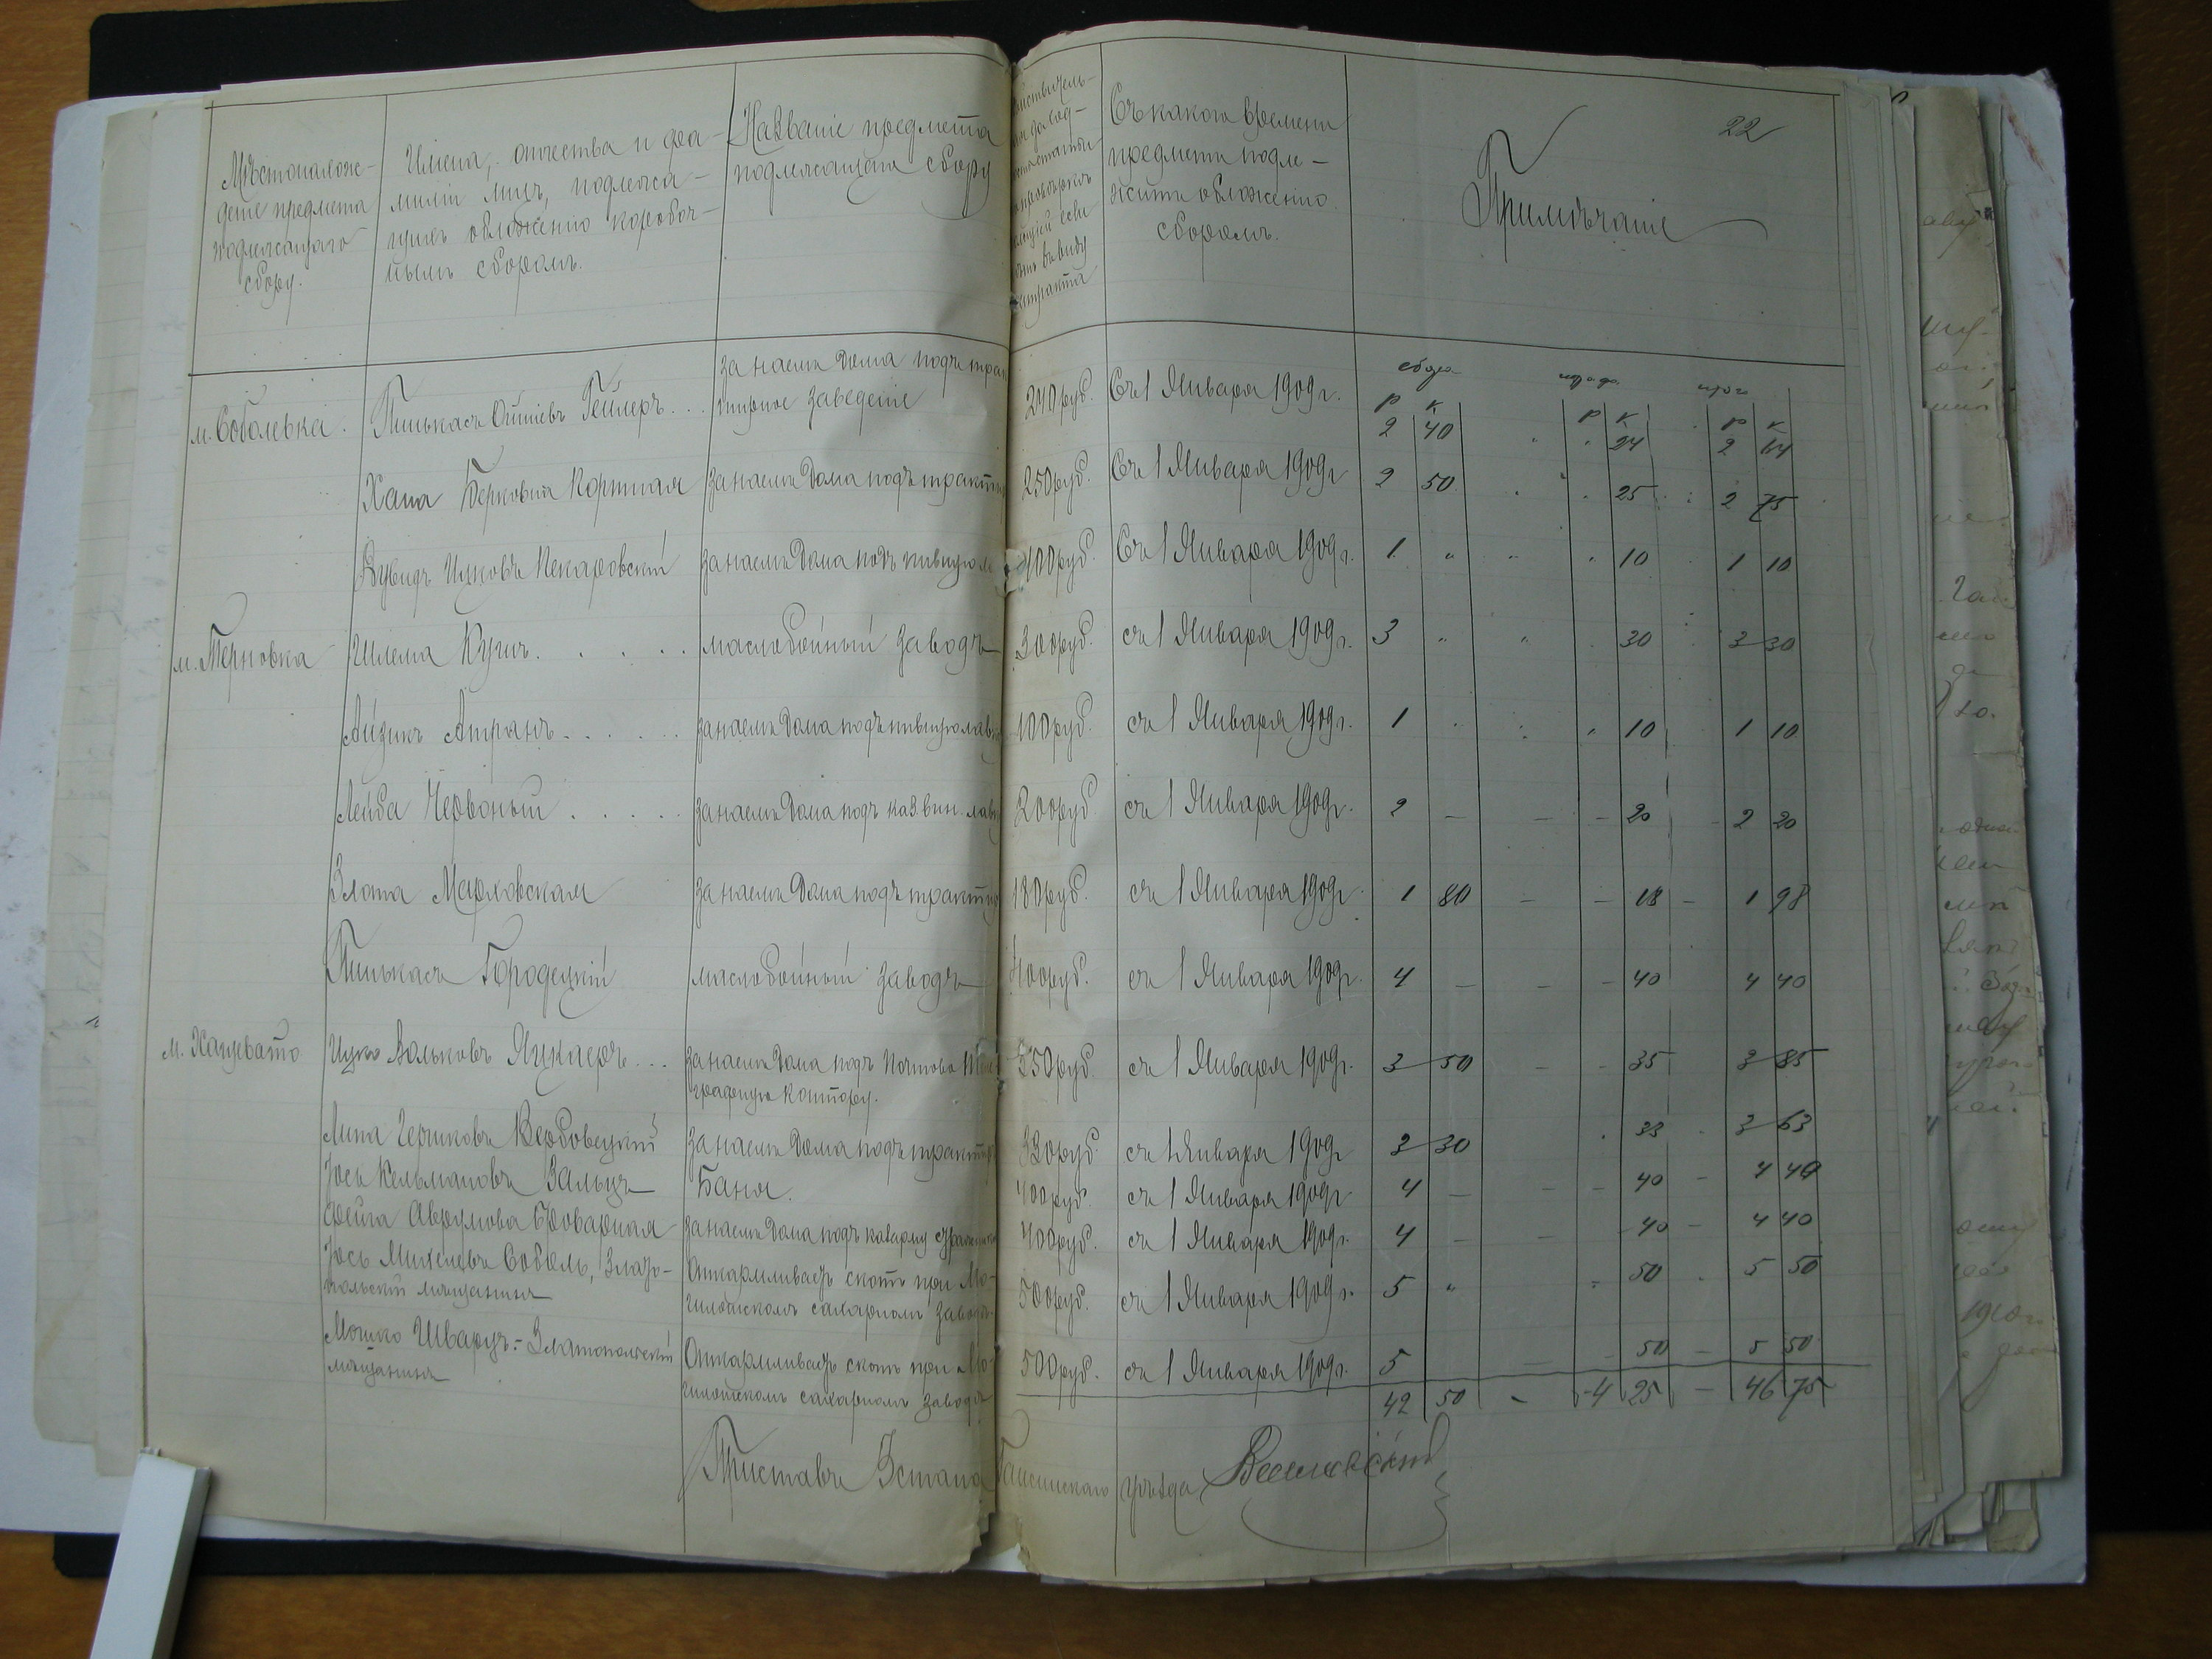 22
Мѣстонахож-
деніе предмета
подлежащаго
сбору.
Имена, отчества и фа-
миліи лицъ, подлежа-
щихъ обложенію коробоч-
нымъ сборомъ.
Названіе предмета
подлежащаго сбору
Съ какого времени
предметъ подле-
житъ обложенію
сборомъ.
Примѣчаніе
сбора итого
р к р к р к
за наемъ Дома подъ трак
м. Соболевка. Пинькасъ Геллеръ... тирное заведеніе 240 руб. Съ 1 Января 1909 г. 2 40 " " 24 2 64
Хана Берковна Портная за наемъ Дома подъ трактир 250 руб. Съ 1 Января 1909 г 2 50 " " 25 2 75
Дувидъ Ицковъ Пекаровскій за наемъ Дома подъ пивную 100 руб. Съ 1 Января 1909 г. 1 " " " 10 1 10
м. Терновка Шлема Кушъ..... маслобойный заводъ 300 руб. съ 1 Января 1909 г. 3 " " " 30 3 30
Айзикъ Атранъ...... за наемъ Дома подъ пивную лав 100 руб. съ 1 Января 1909 г. 1 " " " 10 1 10
Лейба Червоный..... за наемъ Дома подъ каз. вин. лав 200 руб. съ 1 Января 1909 г. 2 — — — 20 — 2 20
Злота Марховская за наемъ Дома подъ трактир 180 руб. съ 1 Января 1909 г. 1 80 — — 18 — 1 98
Пинькасъ Городецкій маслобойный заводъ 400 руб. съ 1 Января 1909 г. 4 — — — 40 4 40
м. Хащевато Ицко Вольковъ... за наемъ Дома подъ Почтово Теле 350 руб. съ 1 Января 1909 г. 3 50 — — 35 3 85
графную контору.
Липа Гершковъ Вербовецкій за наемъ Дома подъ трактир 330 руб. съ 1 Января 1909 г 3 30 33 3 63
Іось Кельмановъ Зальцъ Баня. 400 руб. съ 1 Января 1909 г 4 — — — 40 — 4 40
Фейга Аврумова за наемъ Дома подъ 400 руб. съ 1 Января 1909 г. 4 — — — 40 — 4 40
Іось Михелевъ Соболь, Злато- Откармливаетъ скотъ при Мо-
польскій мѣщанинъ гилянскомъ сахарномъ заводѣ 500 руб. съ 1 Января 1909 г. 5 " 50 5 50
Мошко Шварцъ - Златопольскій Откармливаетъ скотъ при Мо-
мѣщанинъ гилянскомъ сахарномъ заводѣ 500 руб. съ 1 Января 1909 г. 5 — — 50 — 5 50
42 50 - 4 25 — 46 75
Приставъ 3 стана Гайсинскаго уѣзда